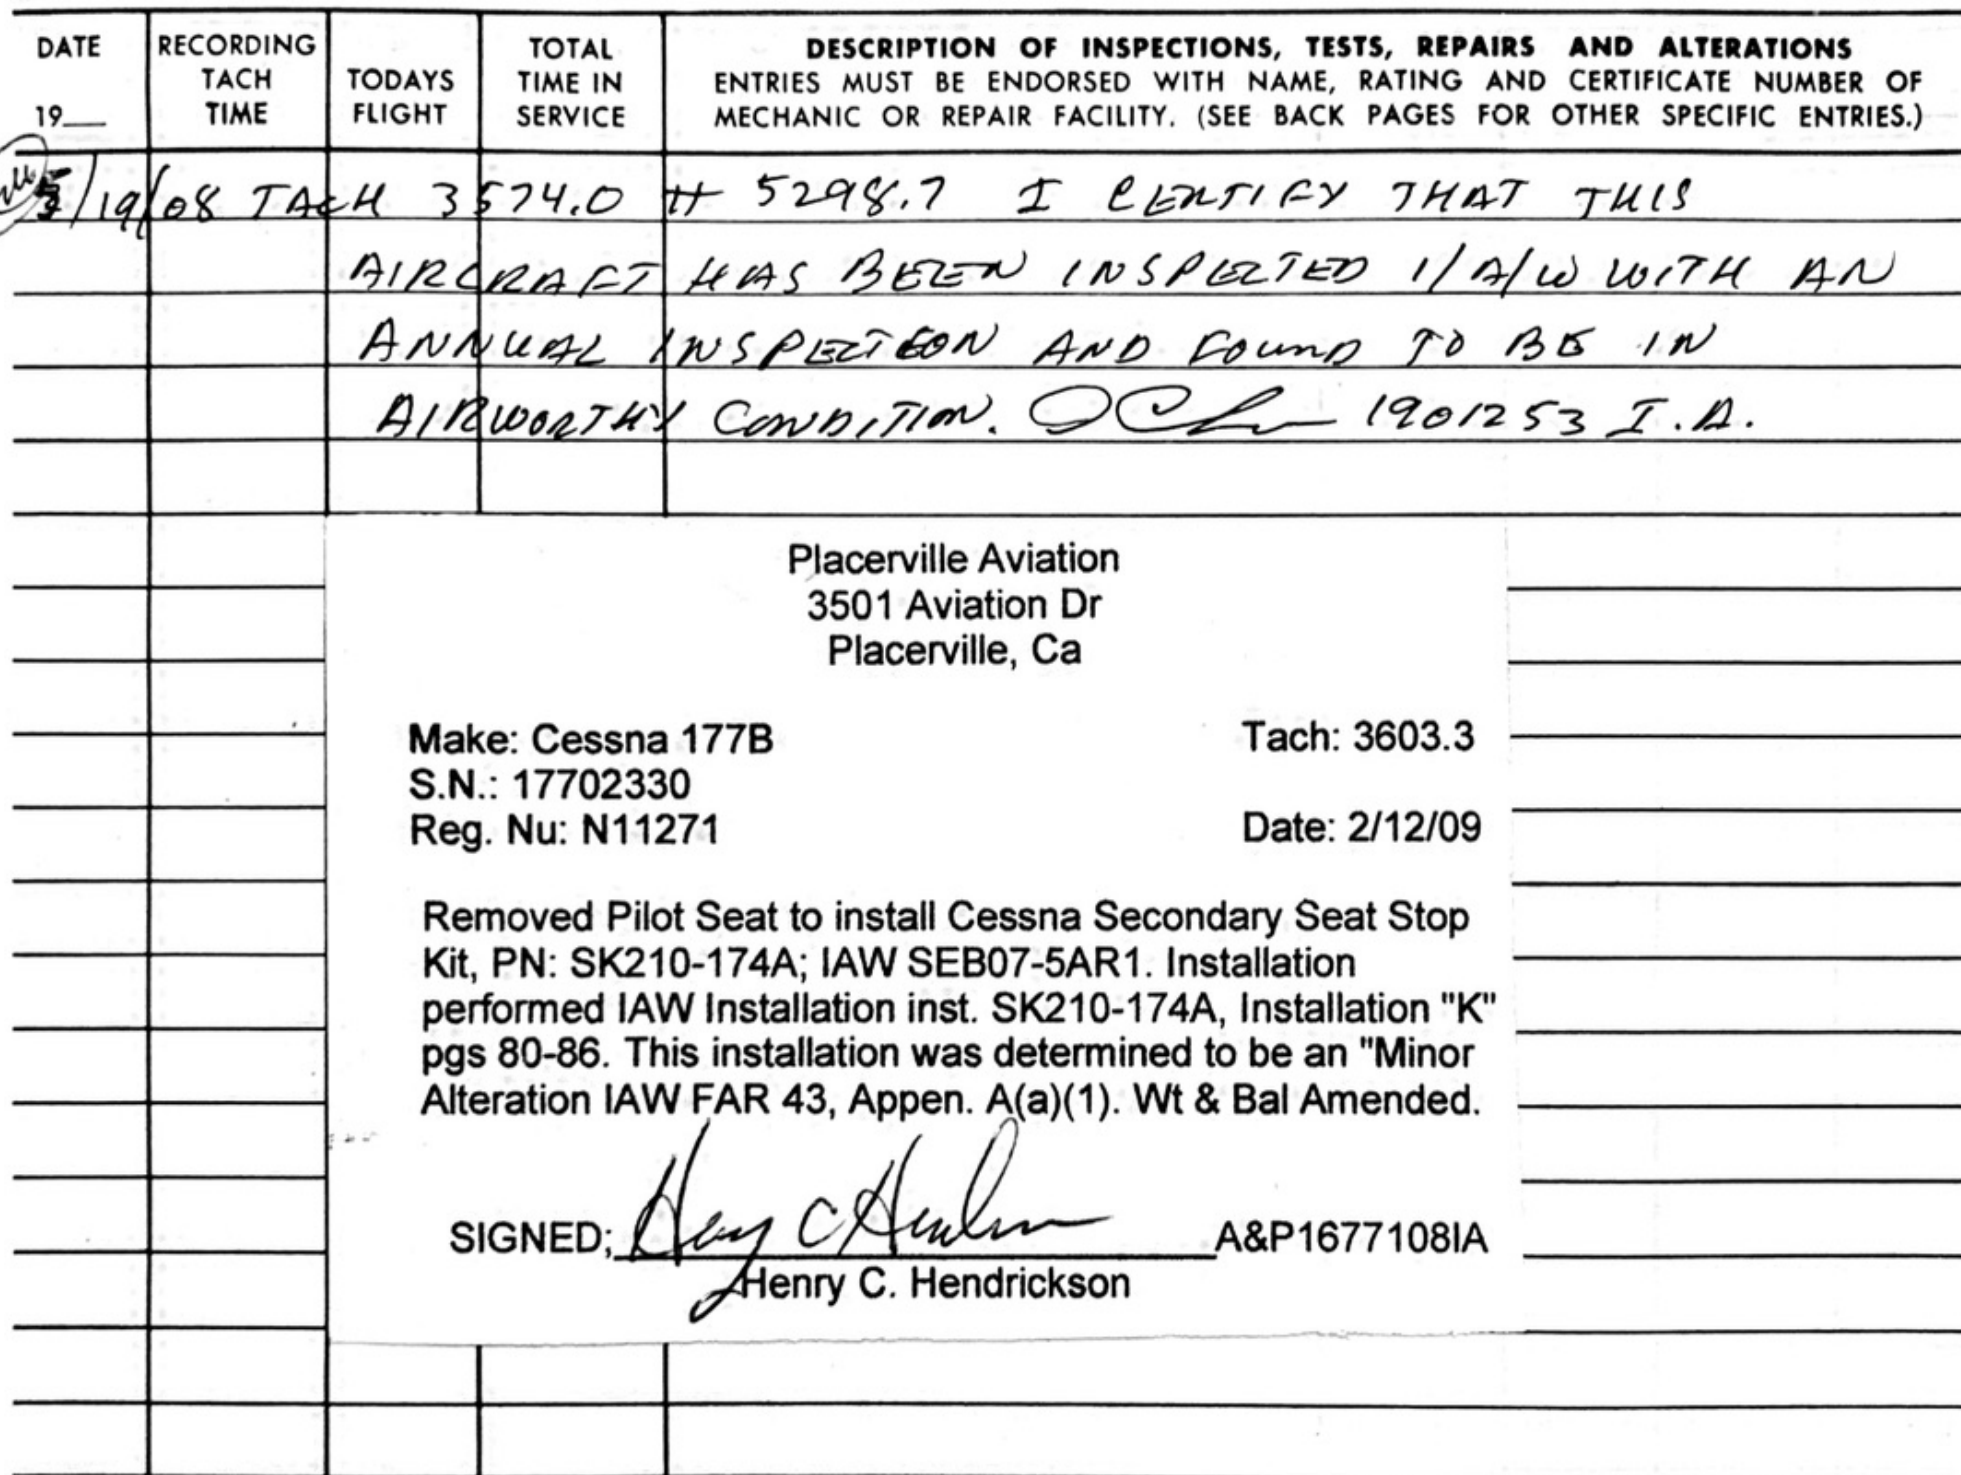 DATE
19__
RECORDING
TACH
TIME
TODAYS
FLIGHT
TOTAL
TIME IN
SERVICE
DESCRIPTION OF INSPECTIONS, TESTS, REPAIRS AND ALTERATIONS
ENTRIES MUST BE ENDORSED WITH NAME, RATING AND CERTIFICATE NUMBER OF
MECHANIC OR REPAIR FACILITY. (SEE BACK PAGES FOR OTHER SPECIFIC ENTRIES.)
/19/08 TACH 3574.0 H 5298.7 I CERTIFY THAT THIS
AIRCRAFT HAS BEEN INSPECTED I/A/W WITH AN
ANNUAL INSPECTION AND FOUND TO BE IN
AIRWORTHY CONDITION. 1901253 I.A.
Placerville Aviation
3501 Aviation Dr
Placerville, Ca
Make: Cessna 177B Tach: 3603.3
S.N.: 17702330
Reg. Nu: N11271 Date: 2/12/09
Removed Pilot Seat to install Cessna Secondary Seat Stop
Kit, PN: SK210-174A; IAW SEB07-5AR1. Installation
performed IAW Installation inst. SK210-174A, Installation "K"
pgs 80-86. This installation was determined to be an "Minor
Alteration IAW FAR 43, Appen. A(a)(1). Wt & Bal Amended.
SIGNED; A&P1677108IA
Henry C. Hendrickson